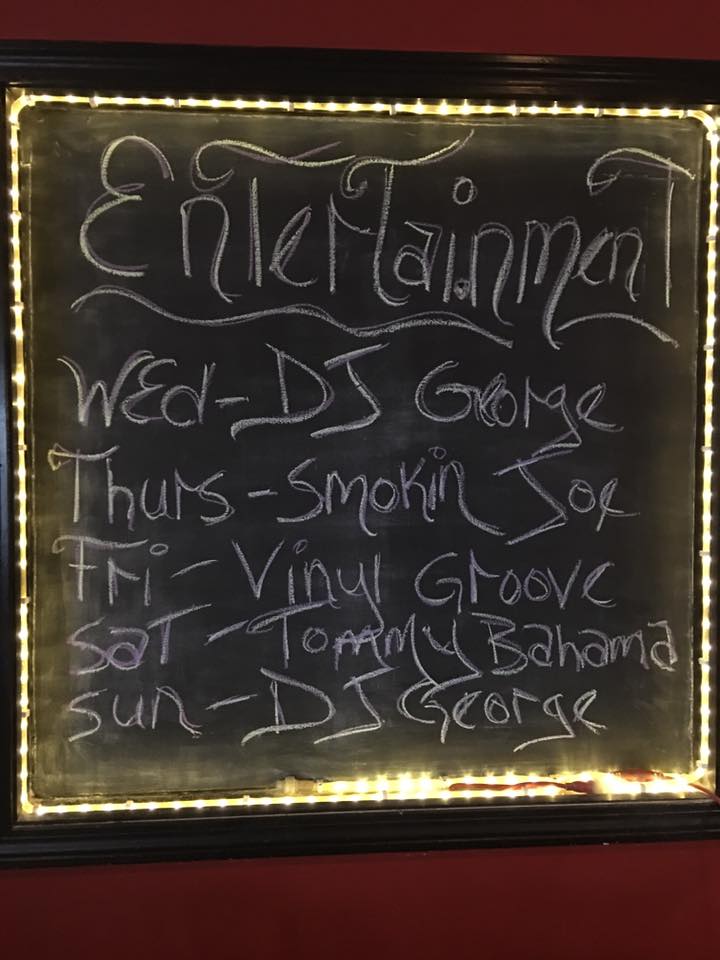 Entertainment
Wed - DJ George
Thurs - Smokin Joe
Fri - Vinyl Groove
Sat - Tommy Bahama
Sun - DJ George